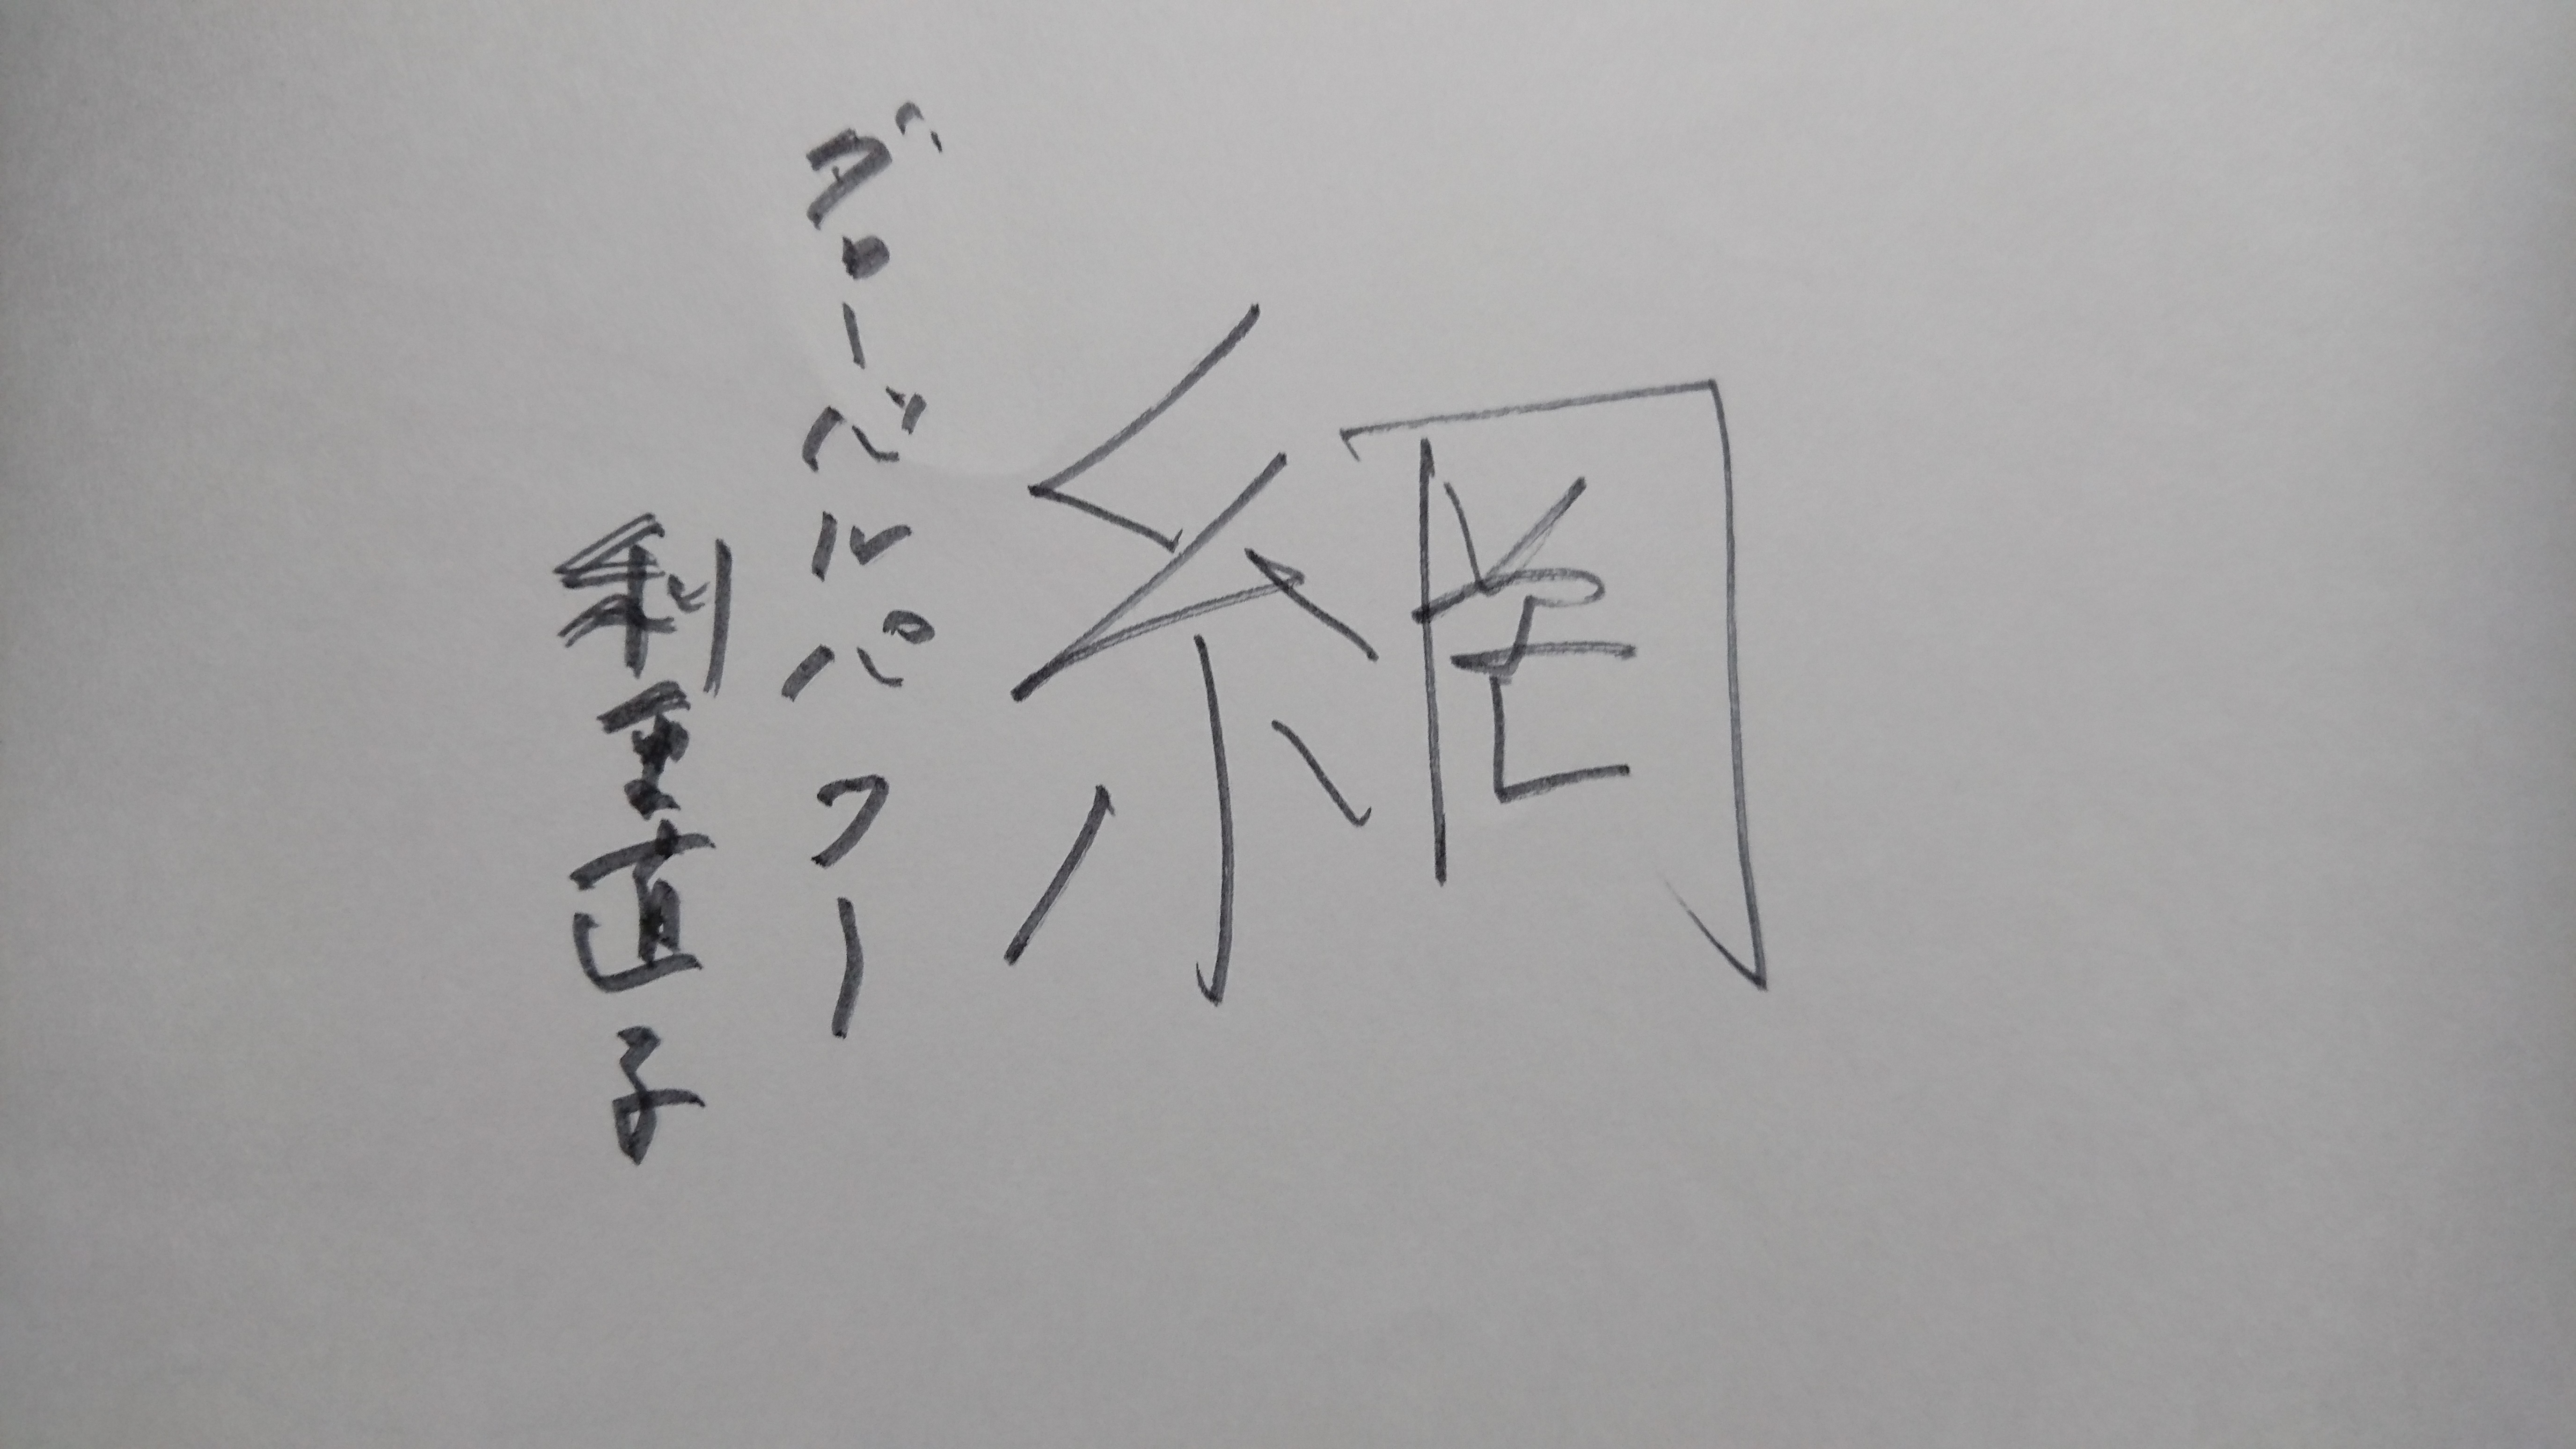 網
グローバルパワー
利重直子